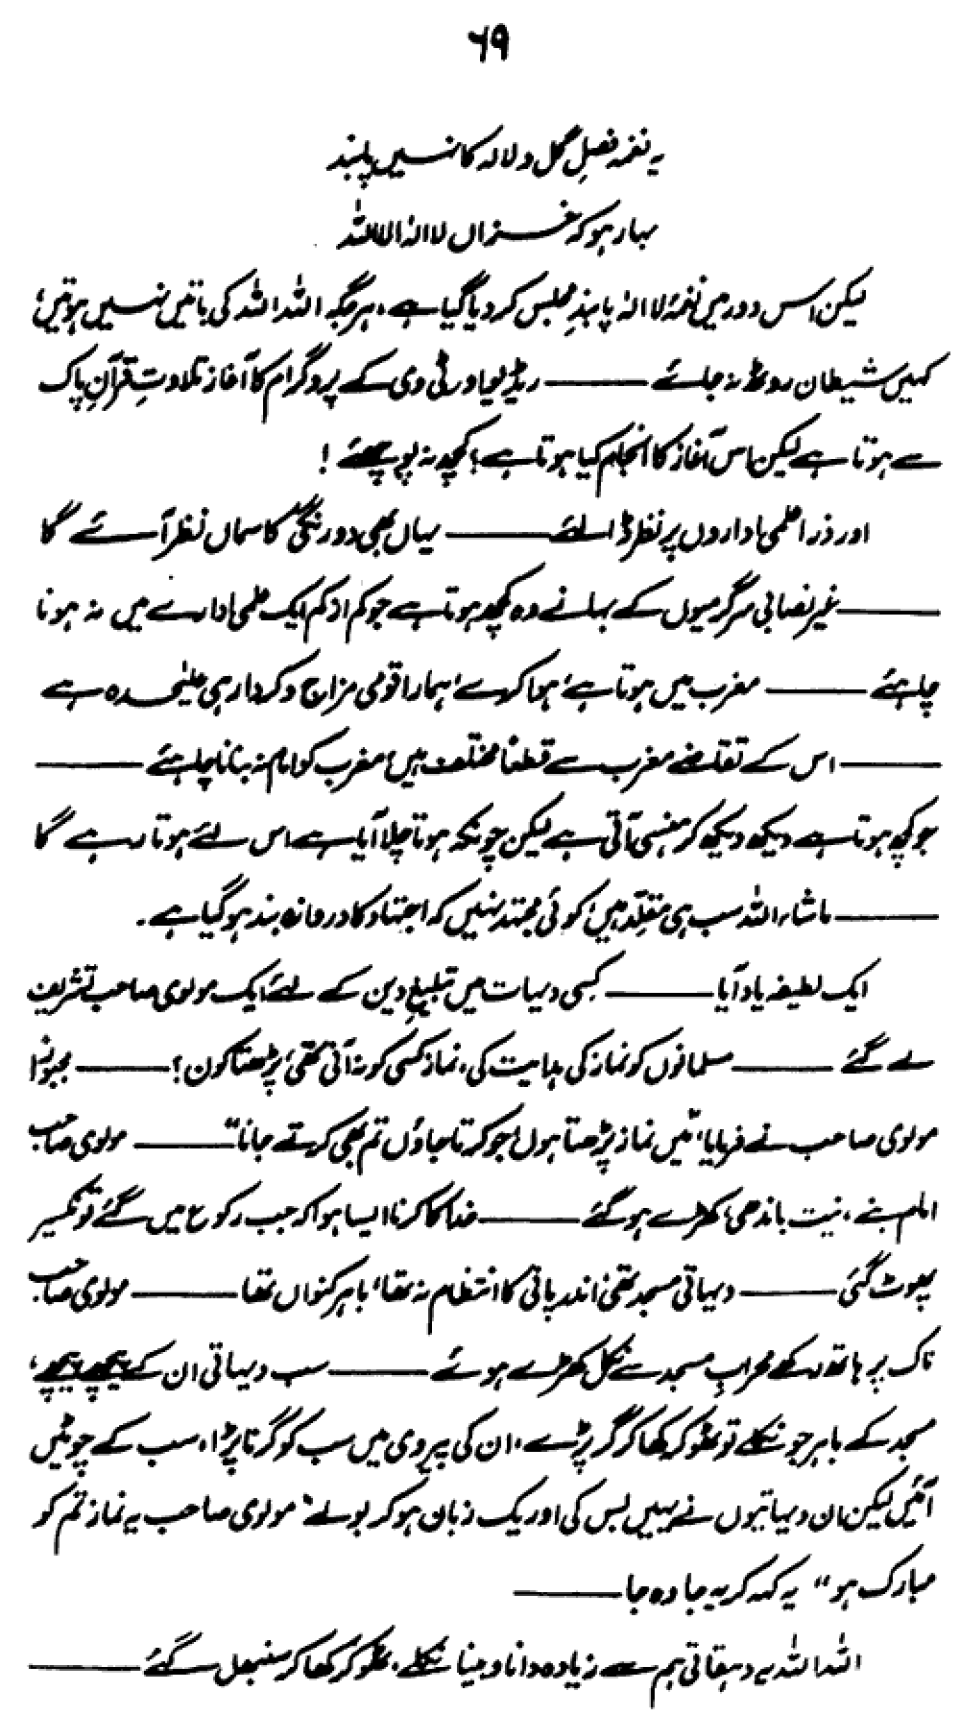 ۶۹
یہ نغمہ فصلِ گل و لالہ کا نہیں پابند
بہار ہو کہ خزاں لا الٰہ الا اللہ
لیکن اس دور میں نغمۂ لا الٰہ پابندِ مجلس کر دیا گیا ہے، ہر جگہ اللہ اللہ کی باتیں نہیں ہوتیں،
کہیں شیطان روٹھ نہ جائے ——— ریڈیو اور ٹی وی کے پروگرام کا آغاز تلاوتِ قرآنِ پاک
سے ہوتا ہے لیکن اس آغاز کا انجام کیا ہوتا ہے؟ کچھ نہ پوچھئے !
اور ذرا علمی اداروں پر نظر ڈالئے ——— یہاں بھی دو رنگی کا سماں نظر آئے گا
——— غیر نصابی سرگرمیوں کے بہانے وہ کچھ ہوتا ہے جو کم از کم ایک علمی ادارے میں نہ ہونا
چاہئے ——— مغرب میں ہوتا ہے، ہوا کرے، ہمارا قومی مزاج و کردار ہی علیٰحدہ ہے
——— اس کے تقاضے مغرب سے قطعاً مختلف ہیں، مغرب کو امام نہ بنانا چاہئے ———
جو کچھ ہوتا ہے دیکھ دیکھ کر ہنسی آتی ہے لیکن چونکہ ہوتا چلا آیا ہے اس لئے ہوتا رہے گا
——— ماشاء اللہ سب ہی مقلّد ہیں، کوئی مجتہد نہیں کہ اجتہاد کا دروازہ بند ہو گیا ہے۔
ایک لطیفہ یاد آیا ——— کسی دیہات میں تبلیغِ دین کے لئے ایک مولوی صاحب تشریف
لے گئے ——— مسلمانوں کو نماز کی ہدایت کی، نماز کسی کو نہ آتی تھی، پڑھتا کون؟ ——— مجبوراً
مولوی صاحب نے فرمایا، "میں نماز پڑھتا ہوں، جو کرتا جاؤں تم بھی کرتے جانا" ——— مولوی صاحب
امام بنے، نیت باندھی، کھڑے ہو گئے ——— خدا کا کرنا ایسا ہوا کہ جب رکوع میں گئے تو نکسیر
پھوٹ گئی ——— دیہاتی مسجد تھی، اندر پانی کا انتظام نہ تھا، باہر کنواں تھا ——— مولوی صاحب
ناک پر ہاتھ رکھے محرابِ مسجد سے نکل کھڑے ہوئے ——— سب دیہاتی ان کے پیچھے پیچھے،
مسجد کے باہر جو نکلے تو ٹھوکر کھا کر گر پڑے، ان کی پیروی میں سب کو گرنا پڑا، سب کے چوٹیں
آئیں لیکن ان دیہاتیوں نے یہیں بس کی اور یک زبان ہو کر بولے "مولوی صاحب یہ نماز تم کو
مبارک ہو" یہ کہہ کر یہ جا وہ جا ———
اللہ اللہ یہ دہقاتی ہم سے زیادہ دانا و بینا نکلے، ٹھوکر کھا کر سنبھل گئے ———